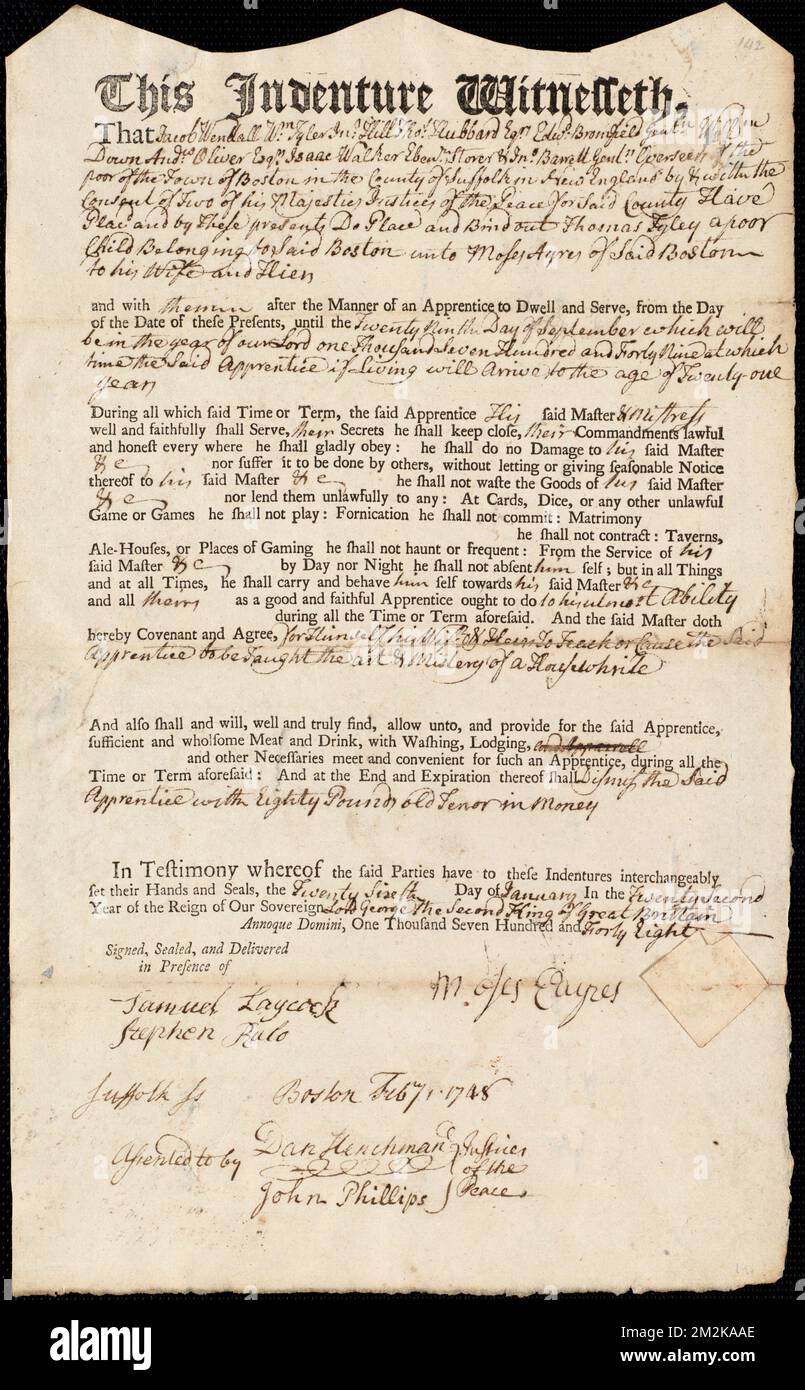 142
This Indenture Witnesseth,
That Jacob Wendall Wm Tyler Jno Hill Thos Hubbard Esqrs Edwd Bromfield
Down Andw Oliver Esqrs Isaac Walker Ebenr Storer & Jno Barrett Gentn Overseers of the
poor of the Town of Boston in the County of Suffolk in New England by & with the
Consent of Two of his Majesties Justices of the Peace for Said County Have
Plac'd and by These presents Do Place and Bind out Thomas Tyley a poor
Child Belonging to Said Boston unto Moses Ayres of Said Boston
to his Wife and Heirs
and with them after the Manner of an Apprentice to Dwell and Serve, from the Day
of the Date of these Presents, until the Twenty Ninth Day of September which will
be in the year of our Lord one Thousand Seven Hundred and Forty Nine at which
time the Said Apprentice if Living will Arrive to the age of Twenty-one
years
During all which said Time or Term, the said Apprentice His said Master & Mistress
well and faithfully shall Serve, their Secrets he shall keep close, their Commandments lawful
and honest every where he shall gladly obey: he shall do no Damage to his said Master
&c nor suffer it to be done by others, without letting or giving seasonable Notice
thereof to his said Master &c he shall not waste the Goods of his said Master
&c nor lend them unlawfully to any: At Cards, Dice, or any other unlawful
Game or Games he shall not play: Fornication he shall not commit: Matrimony
he shall not contract: Taverns,
Ale-Houses, or Places of Gaming he shall not haunt or frequent: From the Service of his
said Master &c by Day nor Night he shall not absent him self; but in all Things
and at all Times, he shall carry and behave him self towards his said Master &c
and all theirs as a good and faithful Apprentice ought to do to his utmost Ability
during all the Time or Term aforesaid. And the said Master doth
hereby Covenant and Agree, for Himself his Wife & Heirs To Teach or Cause the Said
Apprentice to be Taught the art & Mistery of a Housewhrite
And also shall and will, well and truly find, allow unto, and provide for the said Apprentice,
sufficient and wholsome Meat and Drink, with Washing, Lodging, and Apparrell
and other Necessaries meet and convenient for such an Apprentice, during all the
Time or Term aforesaid: And at the End and Expiration thereof shall Dismiss the Said
Apprentice with Eighty Pounds old Tenor in Money
In Testimony whereof the said Parties have to these Indentures interchangeably
set their Hands and Seals, the Twenty Sixth Day of January In the Twenty Second
Year of the Reign of Our Sovereign Lord George the Second King of Great Brittain
Annoque Domini, One Thousand Seven Hundred and Forty Eight
Signed, Sealed, and Delivered
in Presence of
Moses Eayres
Samuel Laycock
Stephen
Suffolk Ss Boston Feby 1 1748
Assented to by Dan Henchman Justices
of the
John Phillips Peace
alamy
Image ID: M2KAAE
www.alamy.com